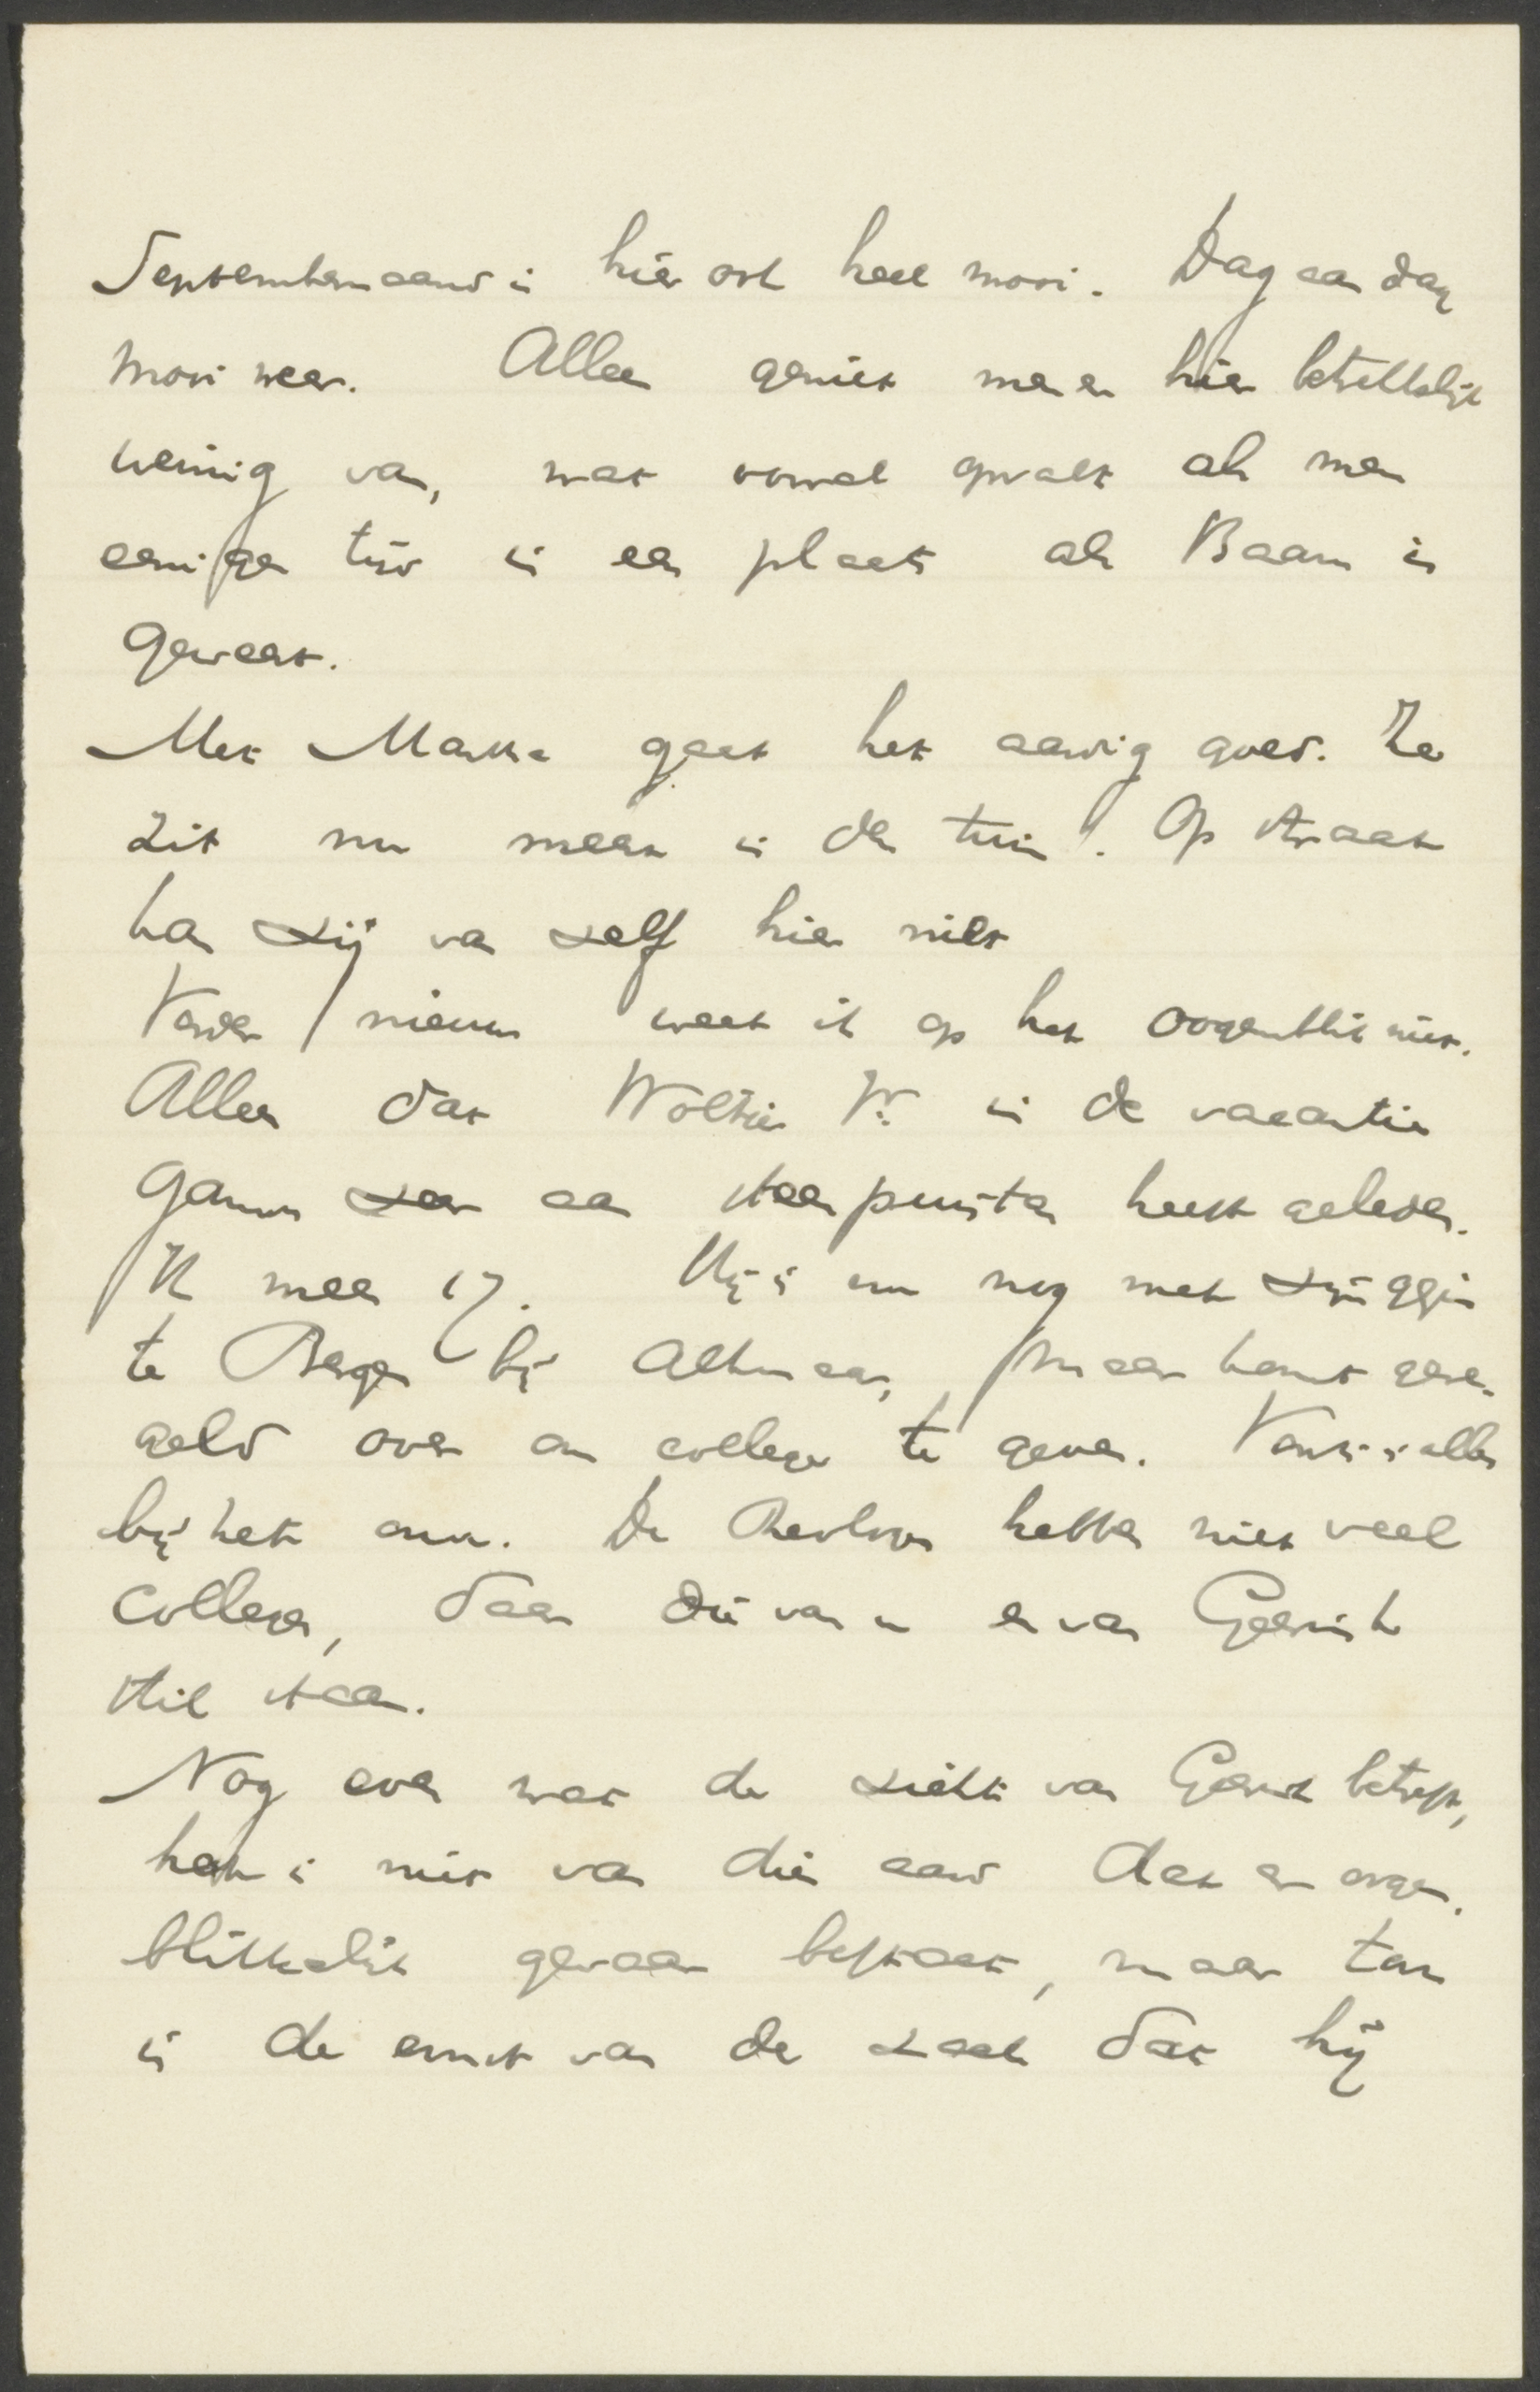 Septembermaand is hier ook heel mooi. Dag aan dag
mooi weer. Alleen geniet men er hier betrekkelijk
weinig van, wat vooral opvalt als men
eenigen tijd in een plaats als Baarn is
geweest.
Met Mama gaat het aardig goed. Ze
zit nu meest in den tuin. Op straat
kan zij van zelf hier niet
Verder nieuws weet ik op het oogenblik niet.
Alleen dat Woltjer Jr. in de vacantie
aan steenpuisten heeft geleden.
Ik meen 17. Hij is nu nog met
te Bergen bij Alkmaar, maar komt gere-
geld over om college te geven. Verder is alles
bij het oude. De Theologen hebben niet veel
college, daar die van u en van Geesink
stil staan.
Nog even wat de ziekte van Geesink betreft,
deze is niet van dien aard dat er oogen-
blikkelijk gevaar bestaat, maar toch
is de ernst van de zaak dat hij